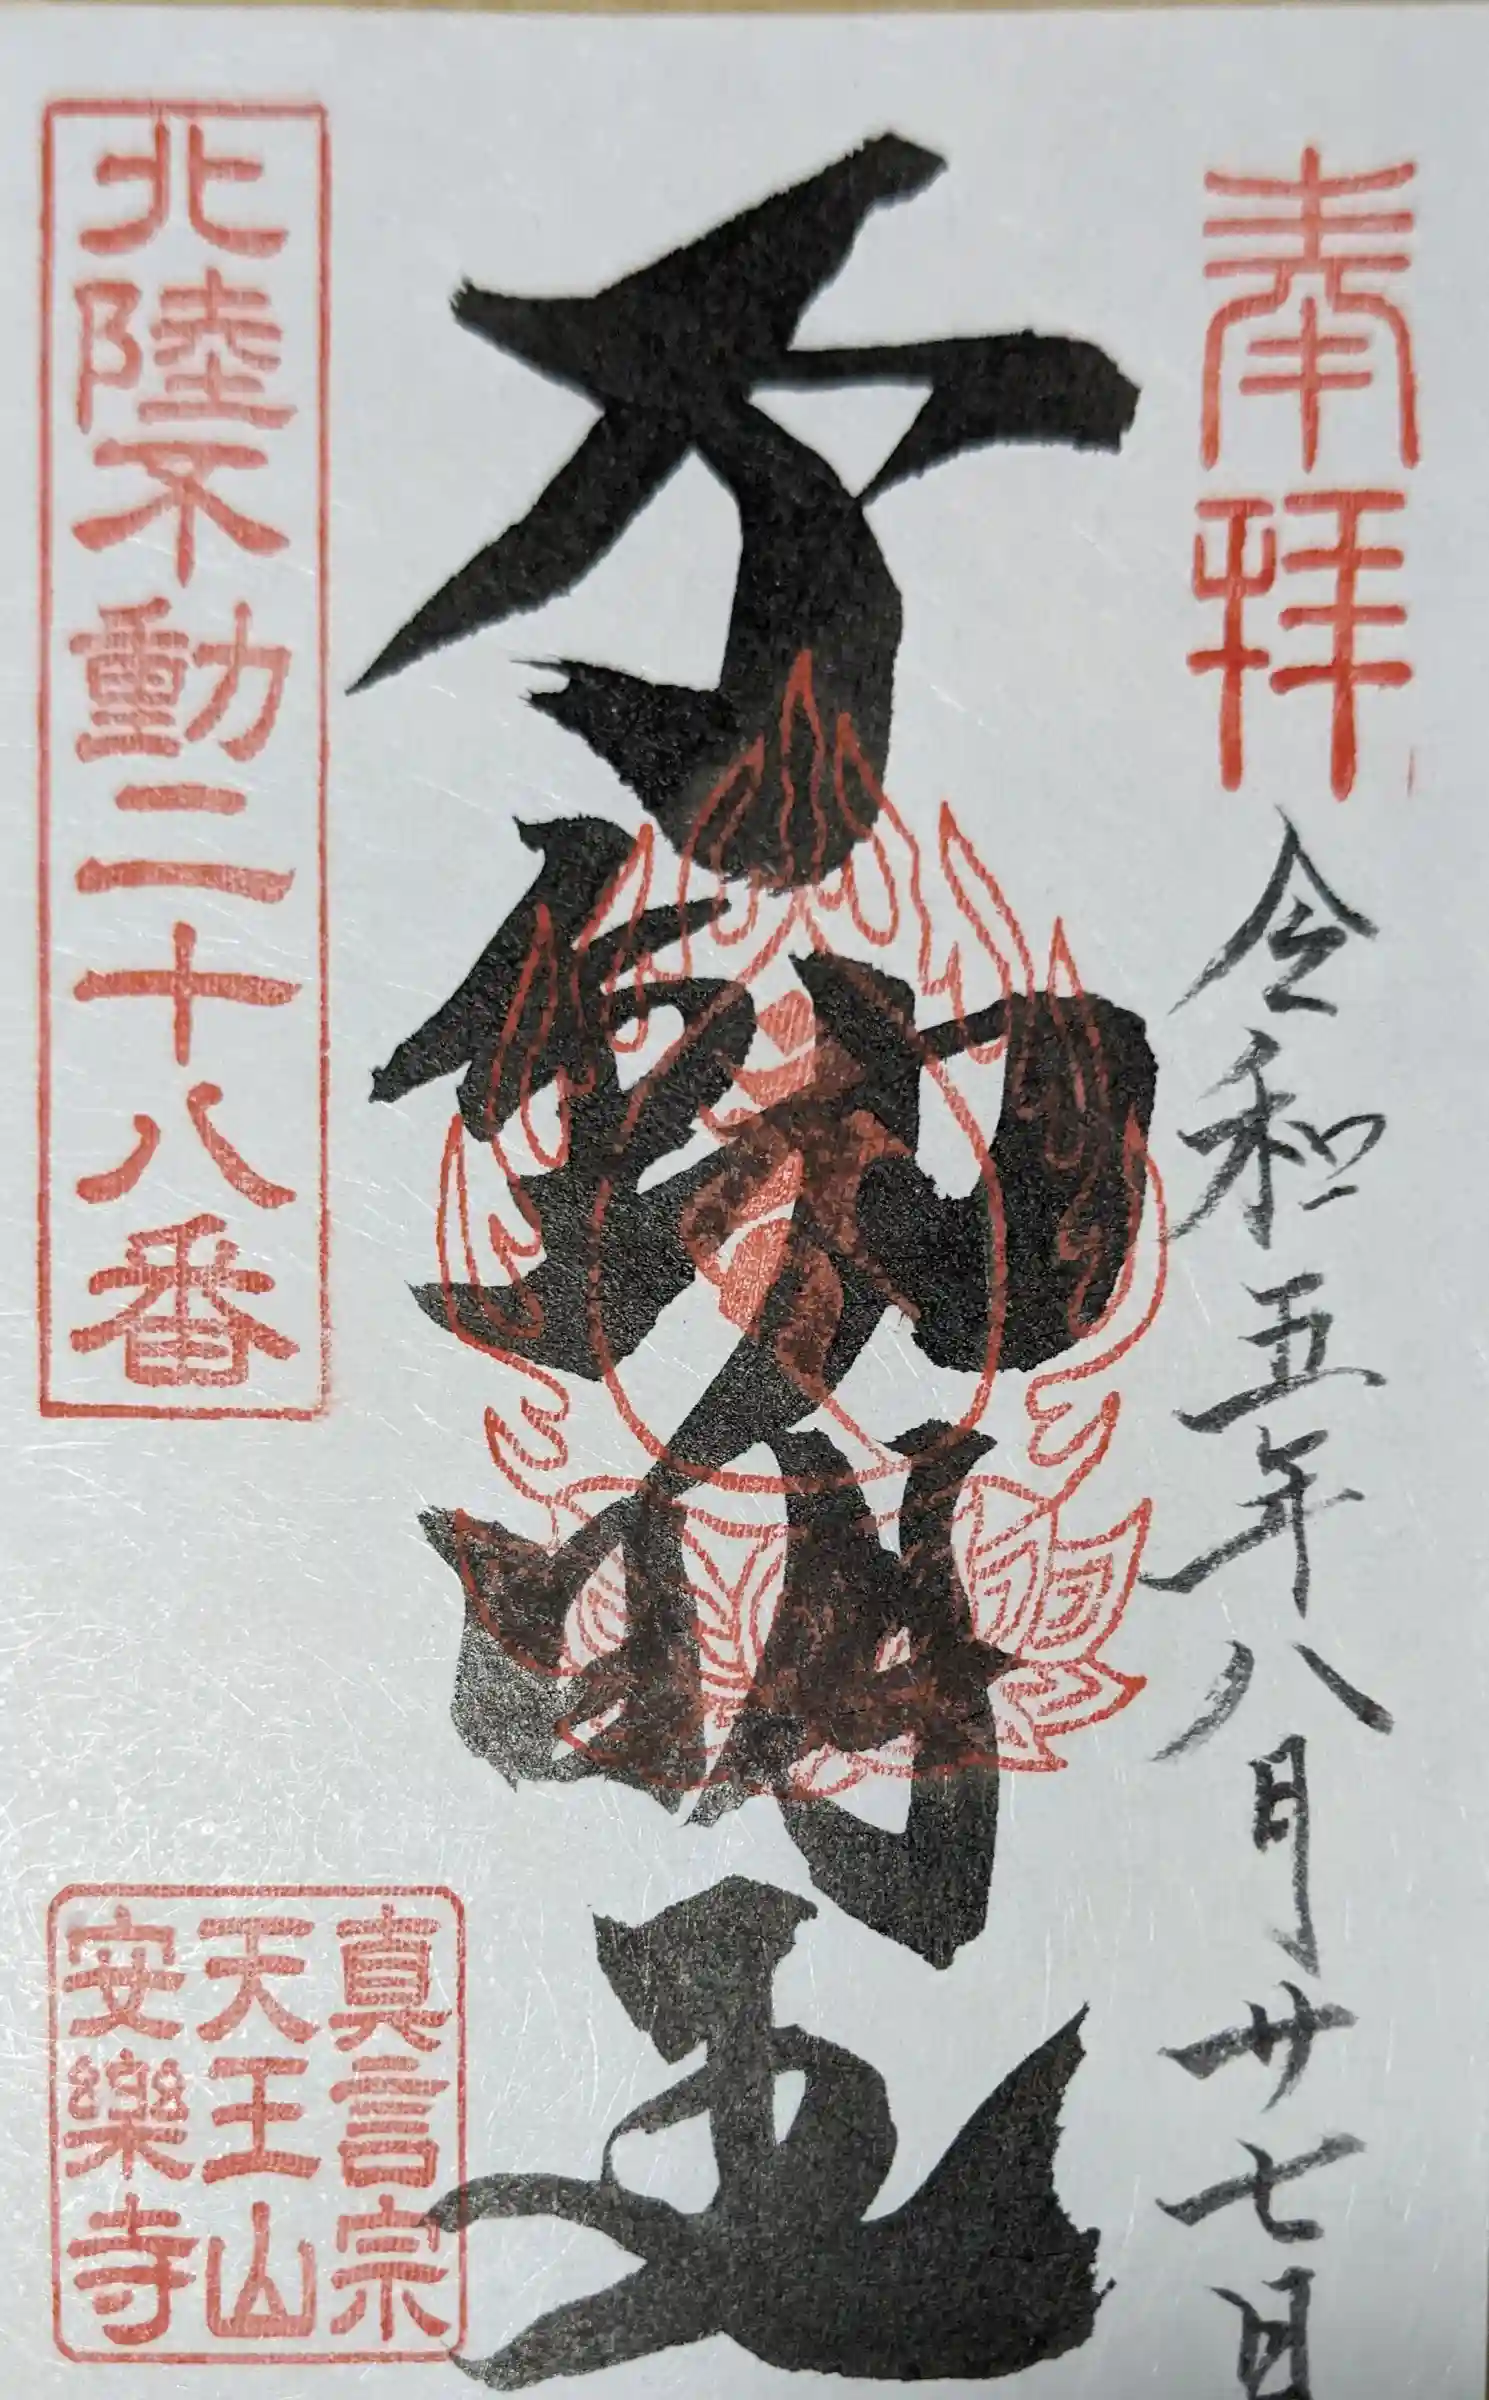 奉拝
令和五年八月廿七日
不動明王
北陸不動二十八番
真言宗
天王山
安樂寺